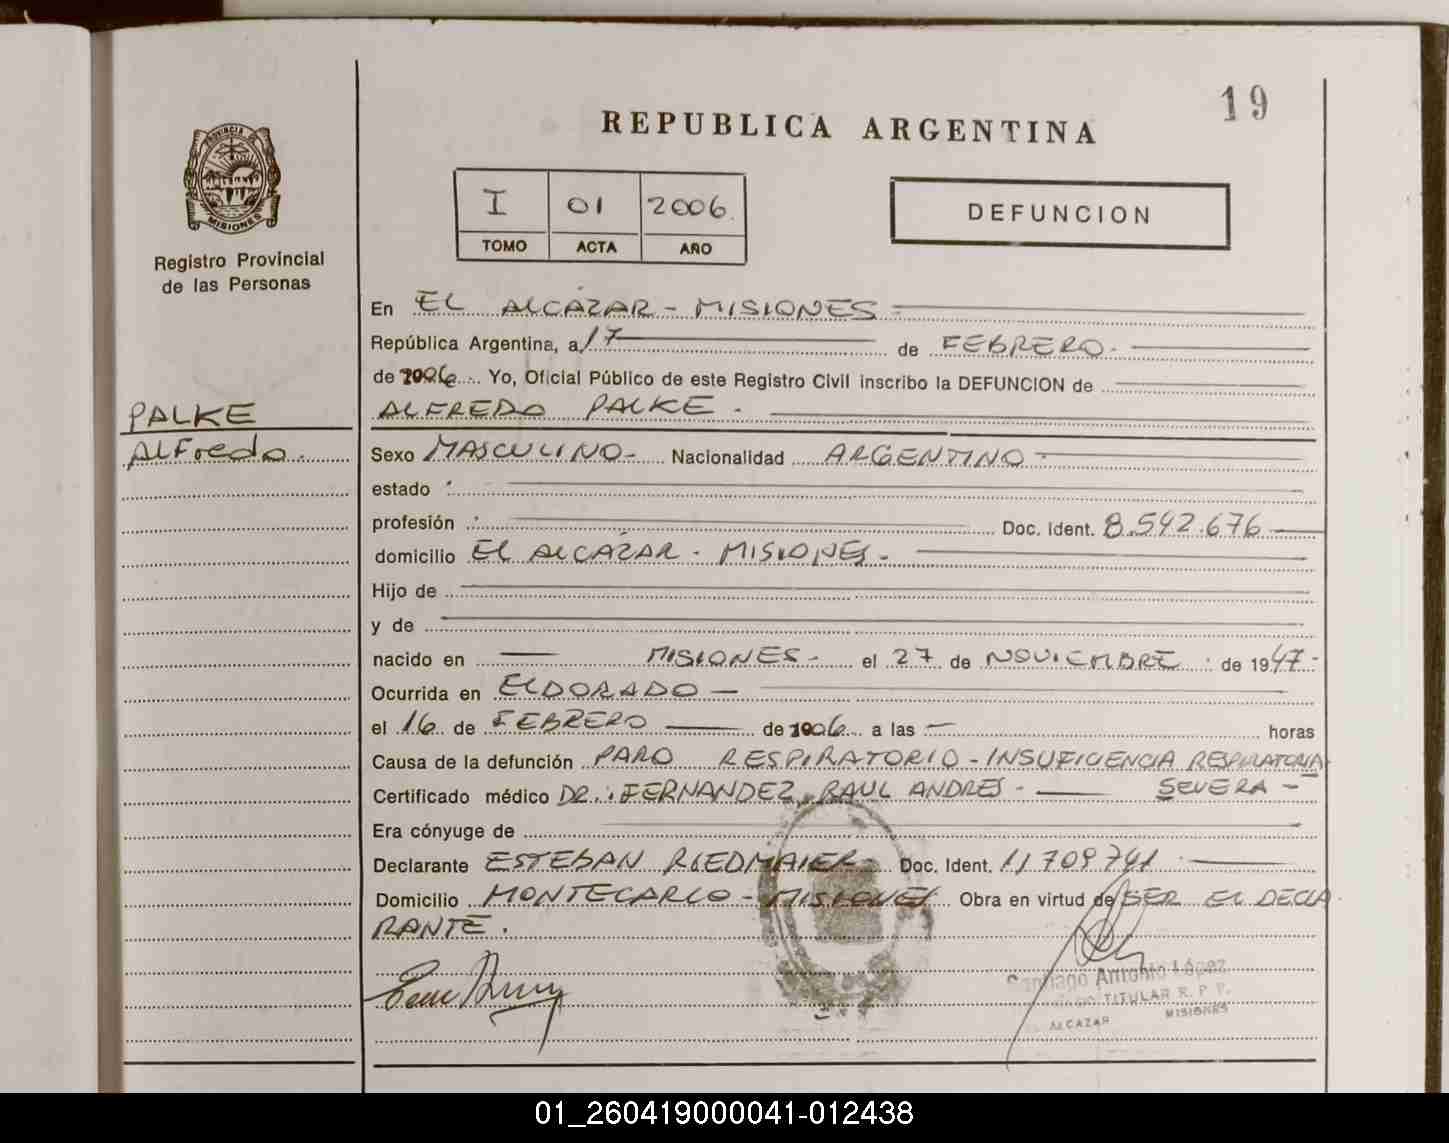 19
REPUBLICA ARGENTINA
PROVINCIA DE
MISIONES
Registro Provincial
de las Personas
I 01 2006
TOMO ACTA AÑO
DEFUNCION
En EL ALCÁZAR - MISIONES -
República Argentina, a 17 de FEBRERO -
de 2006 Yo, Oficial Público de este Registro Civil inscribo la DEFUNCION de
PALKE
ALFREDO PALKE -
ALFredo.
Sexo MASCULINO - Nacionalidad ARGENTINO -
estado
profesión Doc. Ident. 8.542.676
domicilio EL ALCÁZAR - MISIONES -
Hijo de
y de
nacido en — MISIONES - el 27 de NOVIEMBRE de 1947 -
Ocurrida en ELDORADO -
el 16 de FEBRERO — de 2006 a las — horas
Causa de la defunción PARO RESPIRATORIO - INSUFICIENCIA RESPIRATORIA
Certificado médico DR. FERNANDEZ, RAUL ANDRES - — SEVERA -
Era cónyuge de
Declarante ESTEBAN RIEDMAIER Doc. Ident. 11709741
Domicilio MONTECARLO - MISIONES Obra en virtud de SER EL DECLA
RANTE.
Santiago Antonio López
TITULAR R. P. P.
ALCAZAR MISIONES
01_260419000041-012438